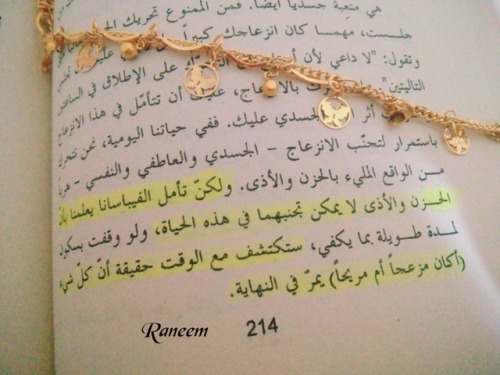 هي متعبة جسدياً أيضاً. فمن الممنوع تحريك
جلست، مهما كان انزعاجك كبيراً
وتقول: "لا داعي لأن على الإطلاق في الساعتين
التاليتين" بالانزعاج، عليك أن تتأمّل في هذا الانزعاج
أثر الجسدي عليك. ففي حياتنا اليومية، نحن نتحرك
باستمرار لتجنّب الانزعاج - الجسدي والعاطفي والنفسي - هرباً
من الواقع المليء بالحزن والأذى. ولكنّ تأمل الفيباسانا يعلمنا بأن
الحزن والأذى لا يمكن تجنبهما في هذه الحياة، ولو وقفت بسكون
لمدة طويلة بما يكفي، ستكتشف مع الوقت حقيقة أن كلّ شيء
(أكان مزعجاً أم مريحاً) يمرّ في النهاية.
Raneem 214